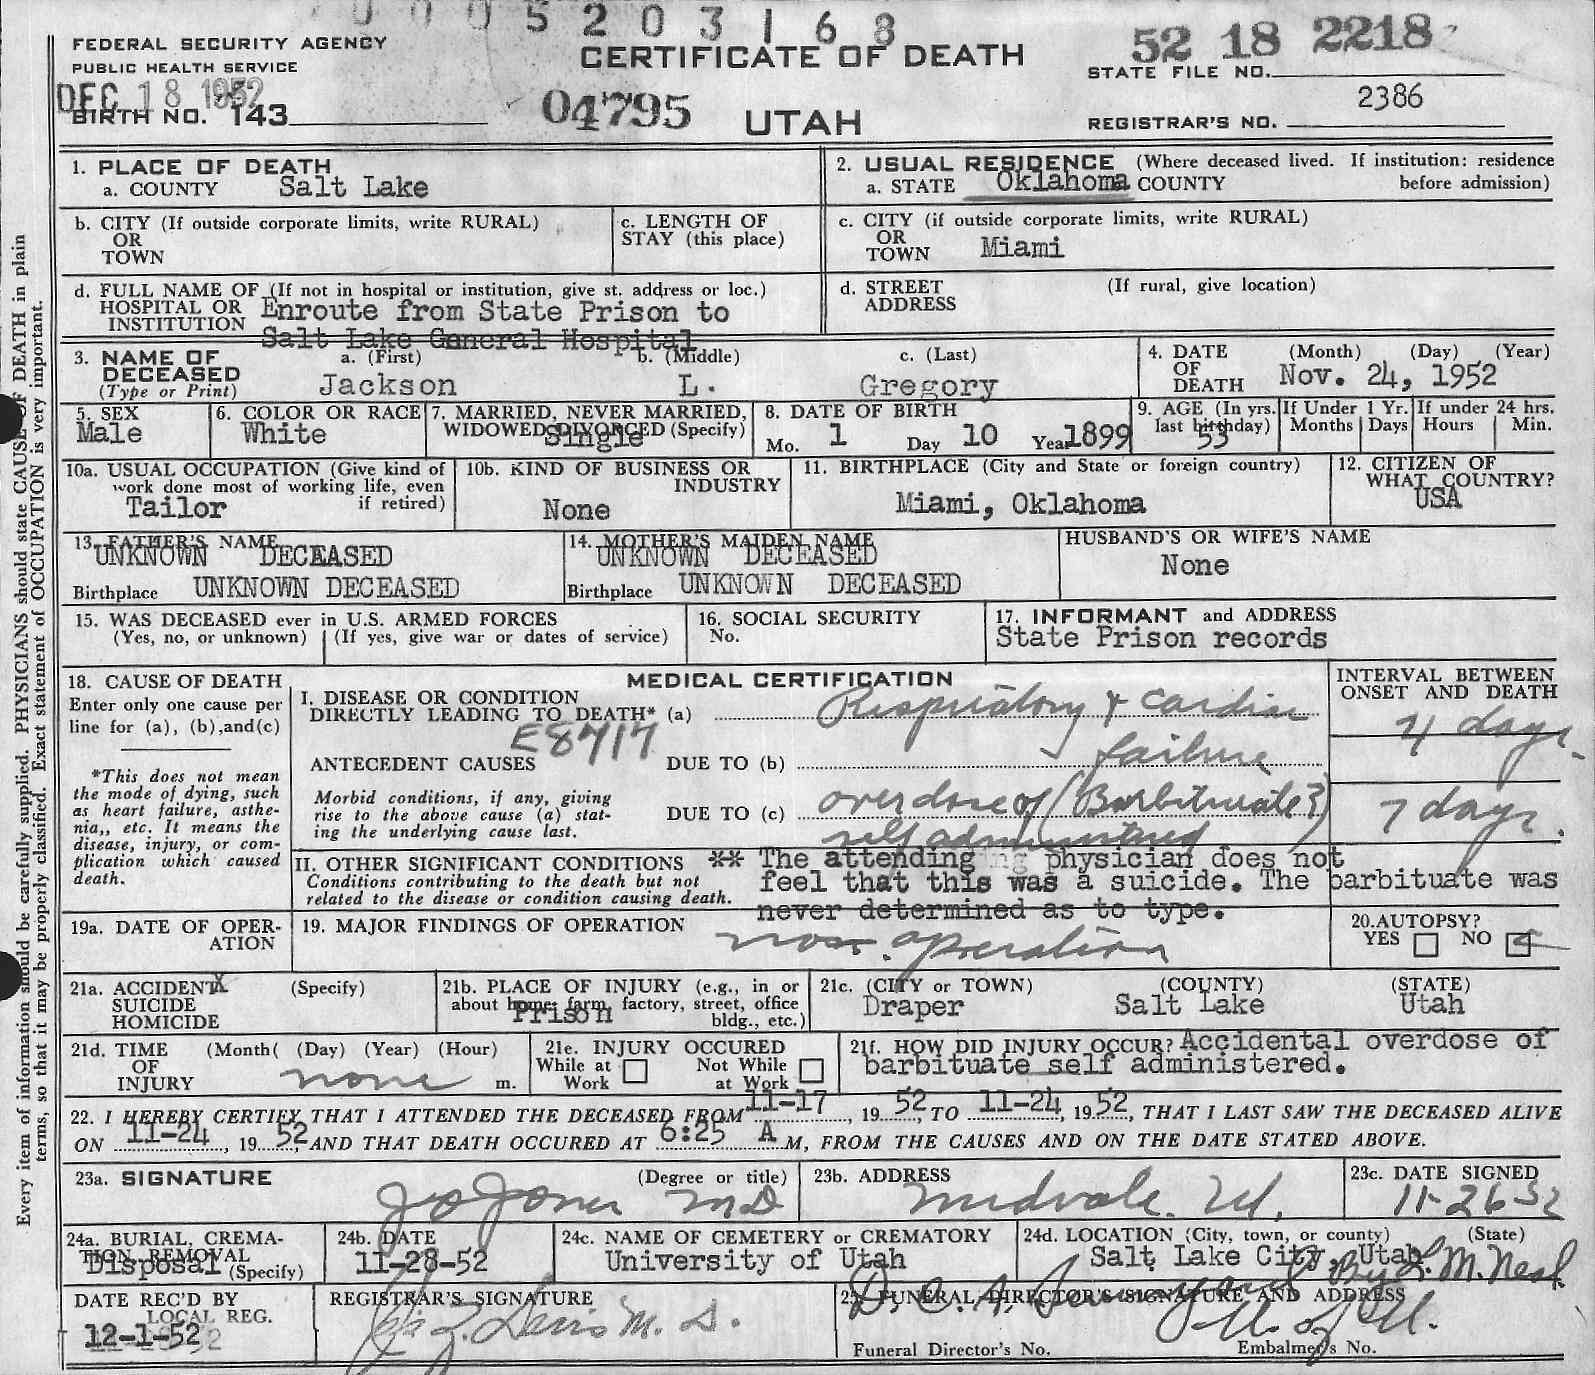 0005203168
FEDERAL SECURITY AGENCY
PUBLIC HEALTH SERVICE
CERTIFICATE OF DEATH
52 18 2218
STATE FILE NO.
DEC 18 1952
BIRTH NO. 143
04795
UTAH
2386
REGISTRAR'S NO.
1. PLACE OF DEATH
a. COUNTY Salt Lake
2. USUAL RESIDENCE (Where deceased lived. If institution: residence before admission)
a. STATE Oklahoma COUNTY
b. CITY (If outside corporate limits, write RURAL)
OR
TOWN
c. LENGTH OF
STAY (this place)
c. CITY (if outside corporate limits, write RURAL)
OR
TOWN Miami
d. FULL NAME OF (If not in hospital or institution, give st. address or loc.)
HOSPITAL OR
INSTITUTION Enroute from State Prison to
Salt Lake General Hospital
d. STREET (If rural, give location)
ADDRESS
3. NAME OF
DECEASED
(Type or Print)
a. (First) b. (Middle) c. (Last)
Jackson L. Gregory
4. DATE
OF
DEATH
(Month) (Day) (Year)
Nov. 24, 1952
5. SEX
Male
6. COLOR OR RACE
White
7. MARRIED, NEVER MARRIED,
WIDOWED, DIVORCED (Specify)
Single
8. DATE OF BIRTH
Mo. 1 Day 10 Year 1899
9. AGE (In yrs.
last birthday)
53
If Under 1 Yr.
Months Days
If under 24 hrs.
Hours Min.
10a. USUAL OCCUPATION (Give kind of
work done most of working life, even
if retired)
Tailor
10b. KIND OF BUSINESS OR
INDUSTRY
None
11. BIRTHPLACE (City and State or foreign country)
Miami, Oklahoma
12. CITIZEN OF
WHAT COUNTRY?
USA
13. FATHER'S NAME
UNKNOWN DECEASED
Birthplace UNKNOWN DECEASED
14. MOTHER'S MAIDEN NAME
UNKNOWN DECEASED
Birthplace UNKNOWN DECEASED
HUSBAND'S OR WIFE'S NAME
None
15. WAS DECEASED ever in U.S. ARMED FORCES
(Yes, no, or unknown) (If yes, give war or dates of service)
16. SOCIAL SECURITY
No.
17. INFORMANT and ADDRESS
State Prison records
18. CAUSE OF DEATH
Enter only one cause per
line for (a), (b),and(c)
*This does not mean
the mode of dying, such
as heart failure, asthe-
nia,, etc. It means the
disease, injury, or com-
plication which caused
death.
MEDICAL CERTIFICATION
I. DISEASE OR CONDITION
DIRECTLY LEADING TO DEATH* (a) Respiratory & cardiac
ANTECEDENT CAUSES DUE TO (b) failure
Morbid conditions, if any, giving
rise to the above cause (a) stat-
ing the underlying cause last.
DUE TO (c) overdose of (Barbituate?)
self administered
INTERVAL BETWEEN
ONSET AND DEATH
4 days.
7 days.
II. OTHER SIGNIFICANT CONDITIONS
Conditions contributing to the death but not
related to the disease or condition causing death.
** The attending physician does not
feel that this was a suicide. The barbituate was
never determined as to type.
19a. DATE OF OPER-
ATION
19. MAJOR FINDINGS OF OPERATION
operation
20. AUTOPSY?
YES NO
21a. ACCIDENT X (Specify)
SUICIDE
HOMICIDE
21b. PLACE OF INJURY (e.g., in or
about home, farm, factory, street, office
bldg., etc.)
Prison
21c. (CITY or TOWN) (COUNTY) (STATE)
Draper Salt Lake Utah
21d. TIME (Month( (Day) (Year) (Hour)
OF
INJURY none m.
21e. INJURY OCCURED
While at Work
Not While at Work
21f. HOW DID INJURY OCCUR? Accidental overdose of
barbituate self administered.
22. I HEREBY CERTIFY THAT I ATTENDED THE DECEASED FROM 11-17, 1952, TO 11-24, 1952, THAT I LAST SAW THE DECEASED ALIVE
ON 11-24, 1952, AND THAT DEATH OCCURED AT 6:25 A M, FROM THE CAUSES AND ON THE DATE STATED ABOVE.
23a. SIGNATURE (Degree or title)
Jones MD
23b. ADDRESS
Midvale. Ut.
23c. DATE SIGNED
11-26-52
24a. BURIAL, CREMA-
TION REMOVAL
(Specify)
Disposal
24b. DATE
11-28-52
24c. NAME OF CEMETERY or CREMATORY
University of Utah
24d. LOCATION (City, town, or county) (State)
Salt Lake City, Utah
DATE REC'D BY
LOCAL REG.
12-1-52
REGISTRAR'S SIGNATURE
Davis M. D.
25. FUNERAL DIRECTOR'S SIGNATURE AND ADDRESS
U. of U.
Funeral Director's No. Embalmer's No.
Every item of information should be carefully supplied. PHYSICIANS should state CAUSE OF DEATH in plain
terms, so that it may be properly classified. Exact statement of OCCUPATION is very important.